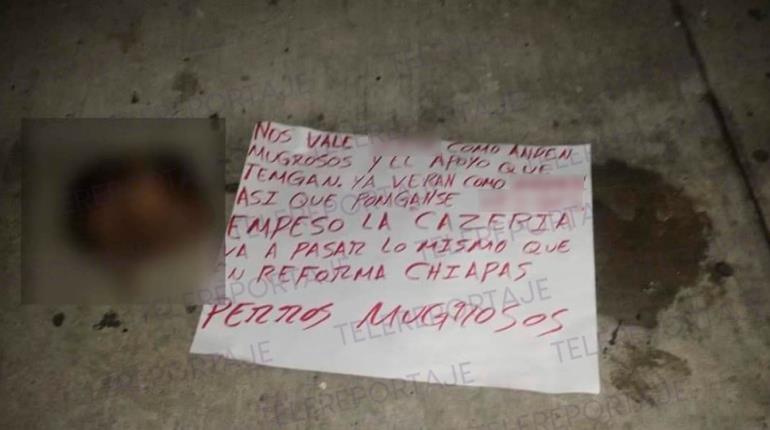 NOS VALE COMO ANDEN
MUGROSOS Y EL APOYO QUE
TEMGAN. YA VERAN COMO
ASI QUE POMGANSE
EMPESO LA CAZERIA
VA A PASAR LO MISMO QUE
N REFORMA CHIAPAS
PERROS MUGROSOS
TELEREPORTAJE
TELEREPORTAJE
TELEREPORTAJE
TELEREPORTAJE